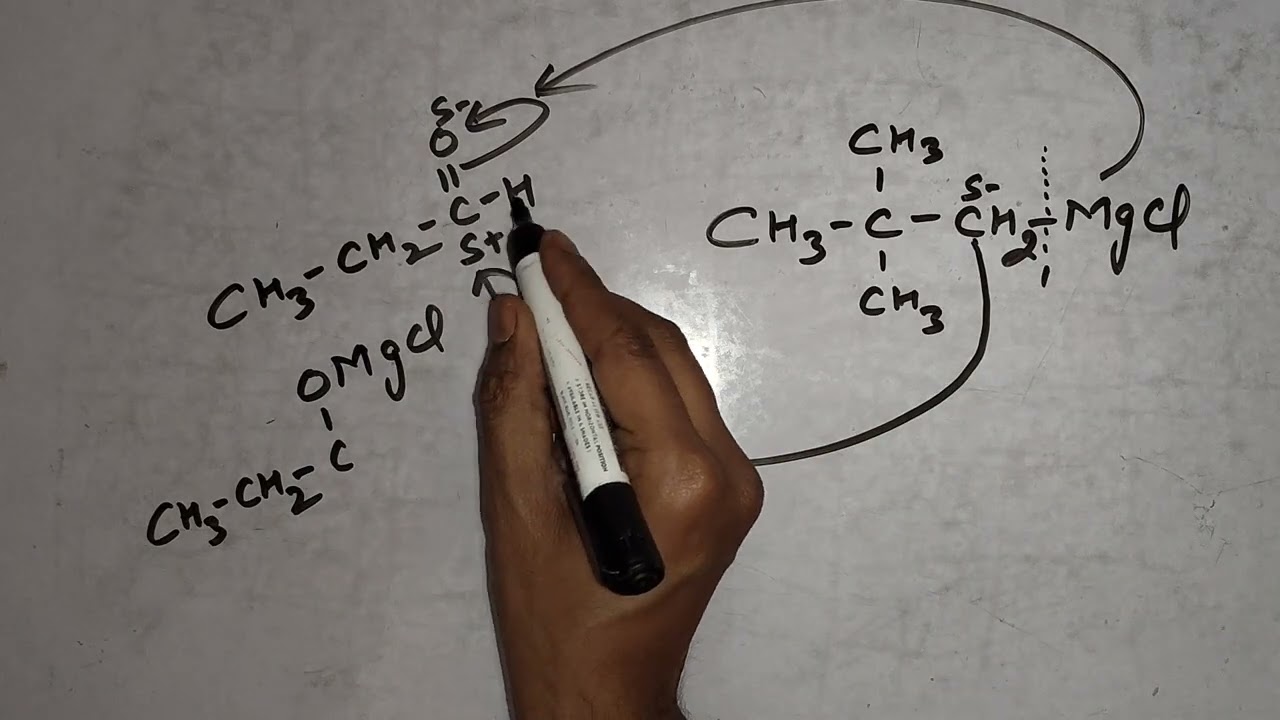 S-
O
||
CH3-CH2-C-H
S+
CH3
|
CH3-C-CH2-MgCl
S-
|
CH3
OMgCl
|
CH3-CH2-C